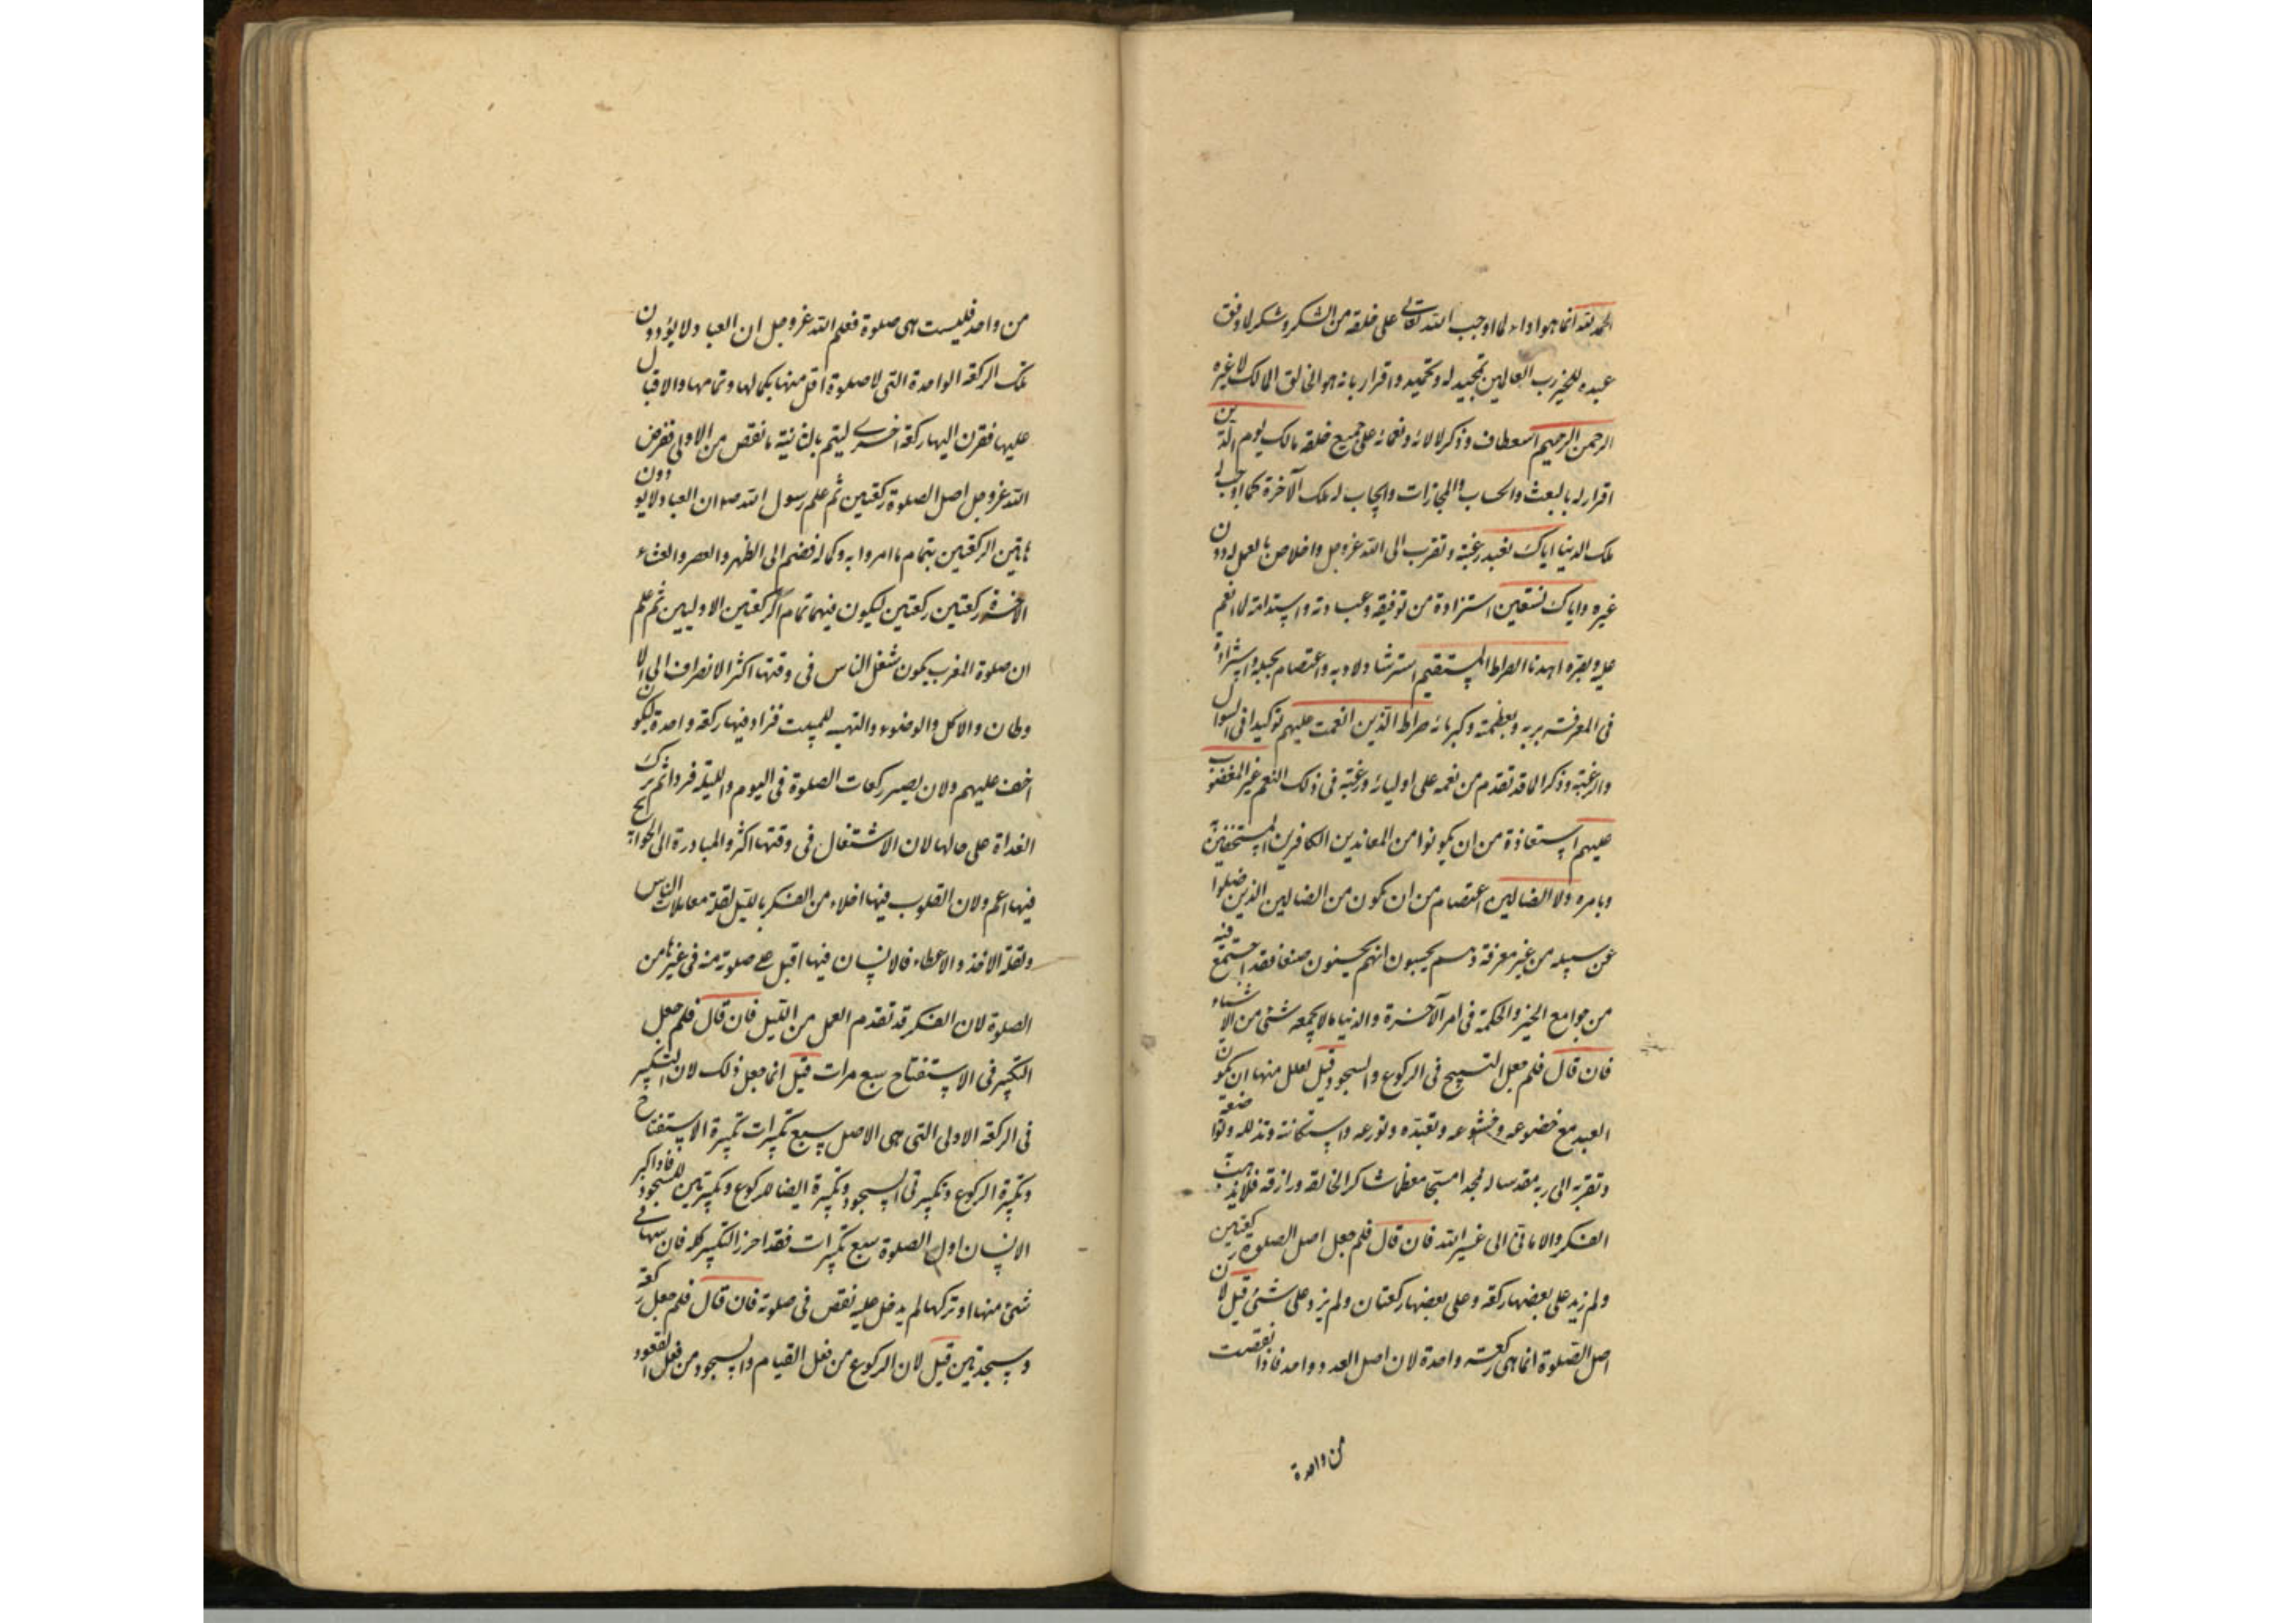 الحمد لله انما هو اداء لما اوجب الله تعالی علی خلقه من الشکر و شکر لما وفق
عبده للخیر رب العالمین تمجید له و تحمید و اقرار بانه هو الخالق المالک لا غیره
الرحمن الرحیم استعطاف و ذکر لالائه و نعمائه علی جمیع خلقه مالک یوم الدین
اقرار له بالبعث و الحساب و المجازات و ایجاب له ملک الآخرة کما اوجب له
ملک الدنیا ایاک نعبد رغبة و تقرب الی الله عز و جل و اخلاص بالعمل له دون
غیره و ایاک نستعین استزادة من توفیقه و عبادته و استدامة لما انعم
علیه و بصره اهدنا الصراط المستقیم استرشاد لادبه و اعتصام بحبله و استزادة
فی المعرفة بربه و بعظمته و کبریائه صراط الذین انعمت علیهم توکیدا فی السوال
و الرغبة و ذکرا لما قد تقدم من نعمه علی اولیائه و رغبة فی ذلک النعم غیر المغضوب
علیهم استعاذة من ان یکونوا من المعاندین الکافرین المستخفین به
و بامره و لا الضالین اعتصام من ان یکون من الضالین الذین ضلوا
عن سبیله من غیر معرفة و هم یحسبون انهم یحسنون صنعا فقد اجتمع فیه
من جوامع الخیر و الحکمة فی امر الآخرة و الدنیا ما لا یجمعه شئ من الاشیاء
فان قال فلم جعل التسبیح فی الرکوع و السجود قیل لعلل منها ان یکون
العبد مع خضوعه و خشوعه و تعبده و تورعه و استکانته و تذلله و تواضعه
و تقربه الی ربه مقدسا له ممجدا مسبحا معظما شاکرا لخالقه و رازقه فلا یذهب به
الفکر و الامانی الی غیر الله فان قال فلم جعل اصل الصلوة رکعتین
و لم زید علی بعضها رکعة و علی بعضها رکعتان و لم یزد علی شئ قیل لان
اصل الصلوة انما هی رکعة واحدة لان اصل العدد واحد فاذا نقصت
من واحدة
من واحد فلیست هی صلوة فعلم الله عز و جل ان العباد لا یؤدون
تلک الرکعة الواحدة التی لا صلوة اقل منها بکمالها و تمامها و الاقبال
علیها فقرن الیها رکعة اخری لیتم بالثانیة ما نقص من الاولی ففرض
الله عز و جل اصل الصلوة رکعتین ثم علم رسول الله ص ان العباد لا یودون
هاتین الرکعتین بتمام ما امروا به و کماله فضم الی الظهر و العصر و العشاء
الآخرة رکعتین رکعتین لیکون فیهما تمام الرکعتین الاولیین ثم علم
ان صلوة المغرب یکون شغل الناس فی وقتها اکثر الانصراف الی الا
وطان و الاکل و الوضوء و التهیئة للمبیت فزاد فیها رکعة واحدة لیکون
اخف علیهم و لان یصیر رکعات الصلوة فی الیوم و اللیلة فردا ثم ترک
الغداة علی حالها لان الاشتغال فی وقتها اکثر و المبادرة الی الحوائج
فیها اعم و لان القلوب فیها اخلاء من الفکر باللیل لقلة معاملات الناس
و لقلة الاخذ و الاعطاء فالانسان فیها اقبل علی صلوته منه فی غیرها من
الصلوة لان الفکر قد تقدم العمل من اللیل فان قال فلم جعل
التکبیر فی الاستفتاح سبع مرات قیل انما جعل ذلک لان التکبیر
فی الرکعة الاولی التی هی الاصل سبع تکبیرات تکبیرة الاستفتاح
و تکبیرة الرکوع و تکبیرتی السجود و تکبیرة ایضا للرکوع و تکبیرتین للسجود فاذا کبر
الانسان اول الصلوة سبع تکبیرات فقد احرز التکبیر کله فان سها فی
شئ منها او ترکها لم یدخل علیه نقص فی صلوته فان قال فلم جعل رکعة
و سجدتین قیل لان الرکوع من فعل القیام و السجود من فعل القعود